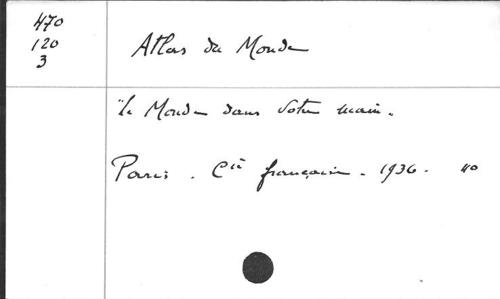 470
120
3
Atlas du Monde
"le Monde dans votre main.
Paris. Cie française. 1936. 4°